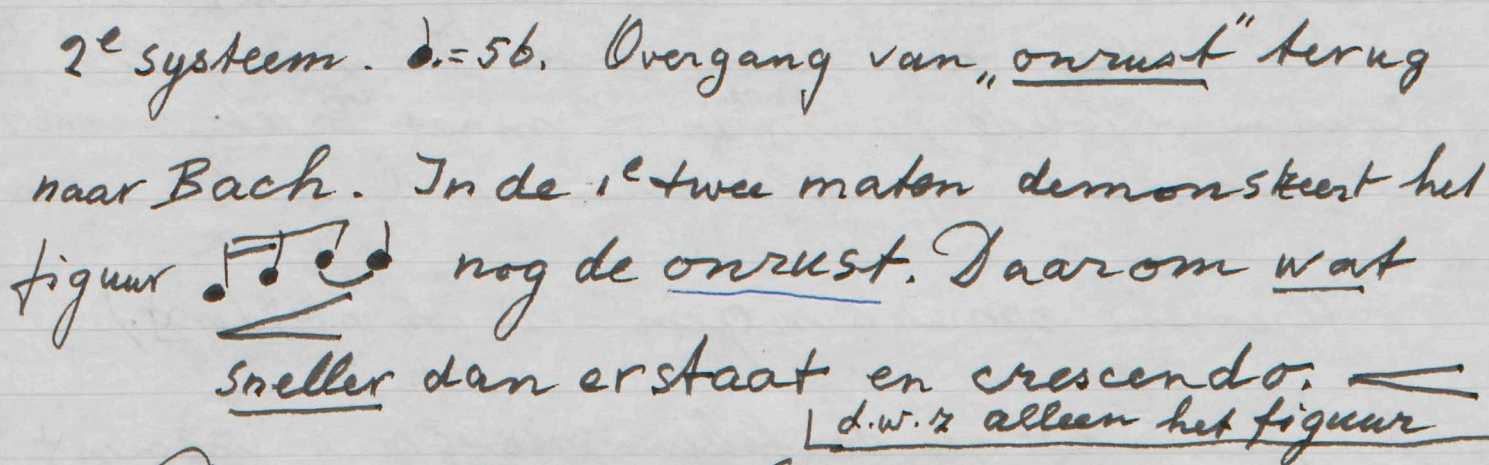 2e systeem. ♩.=56. Overgang van „onrust” terug
naar Bach. In de 1e twee maten demonstreert het
figuur nog de onrust. Daarom wat
sneller dan er staat en crescendo. <
d.w.z alleen het figuur